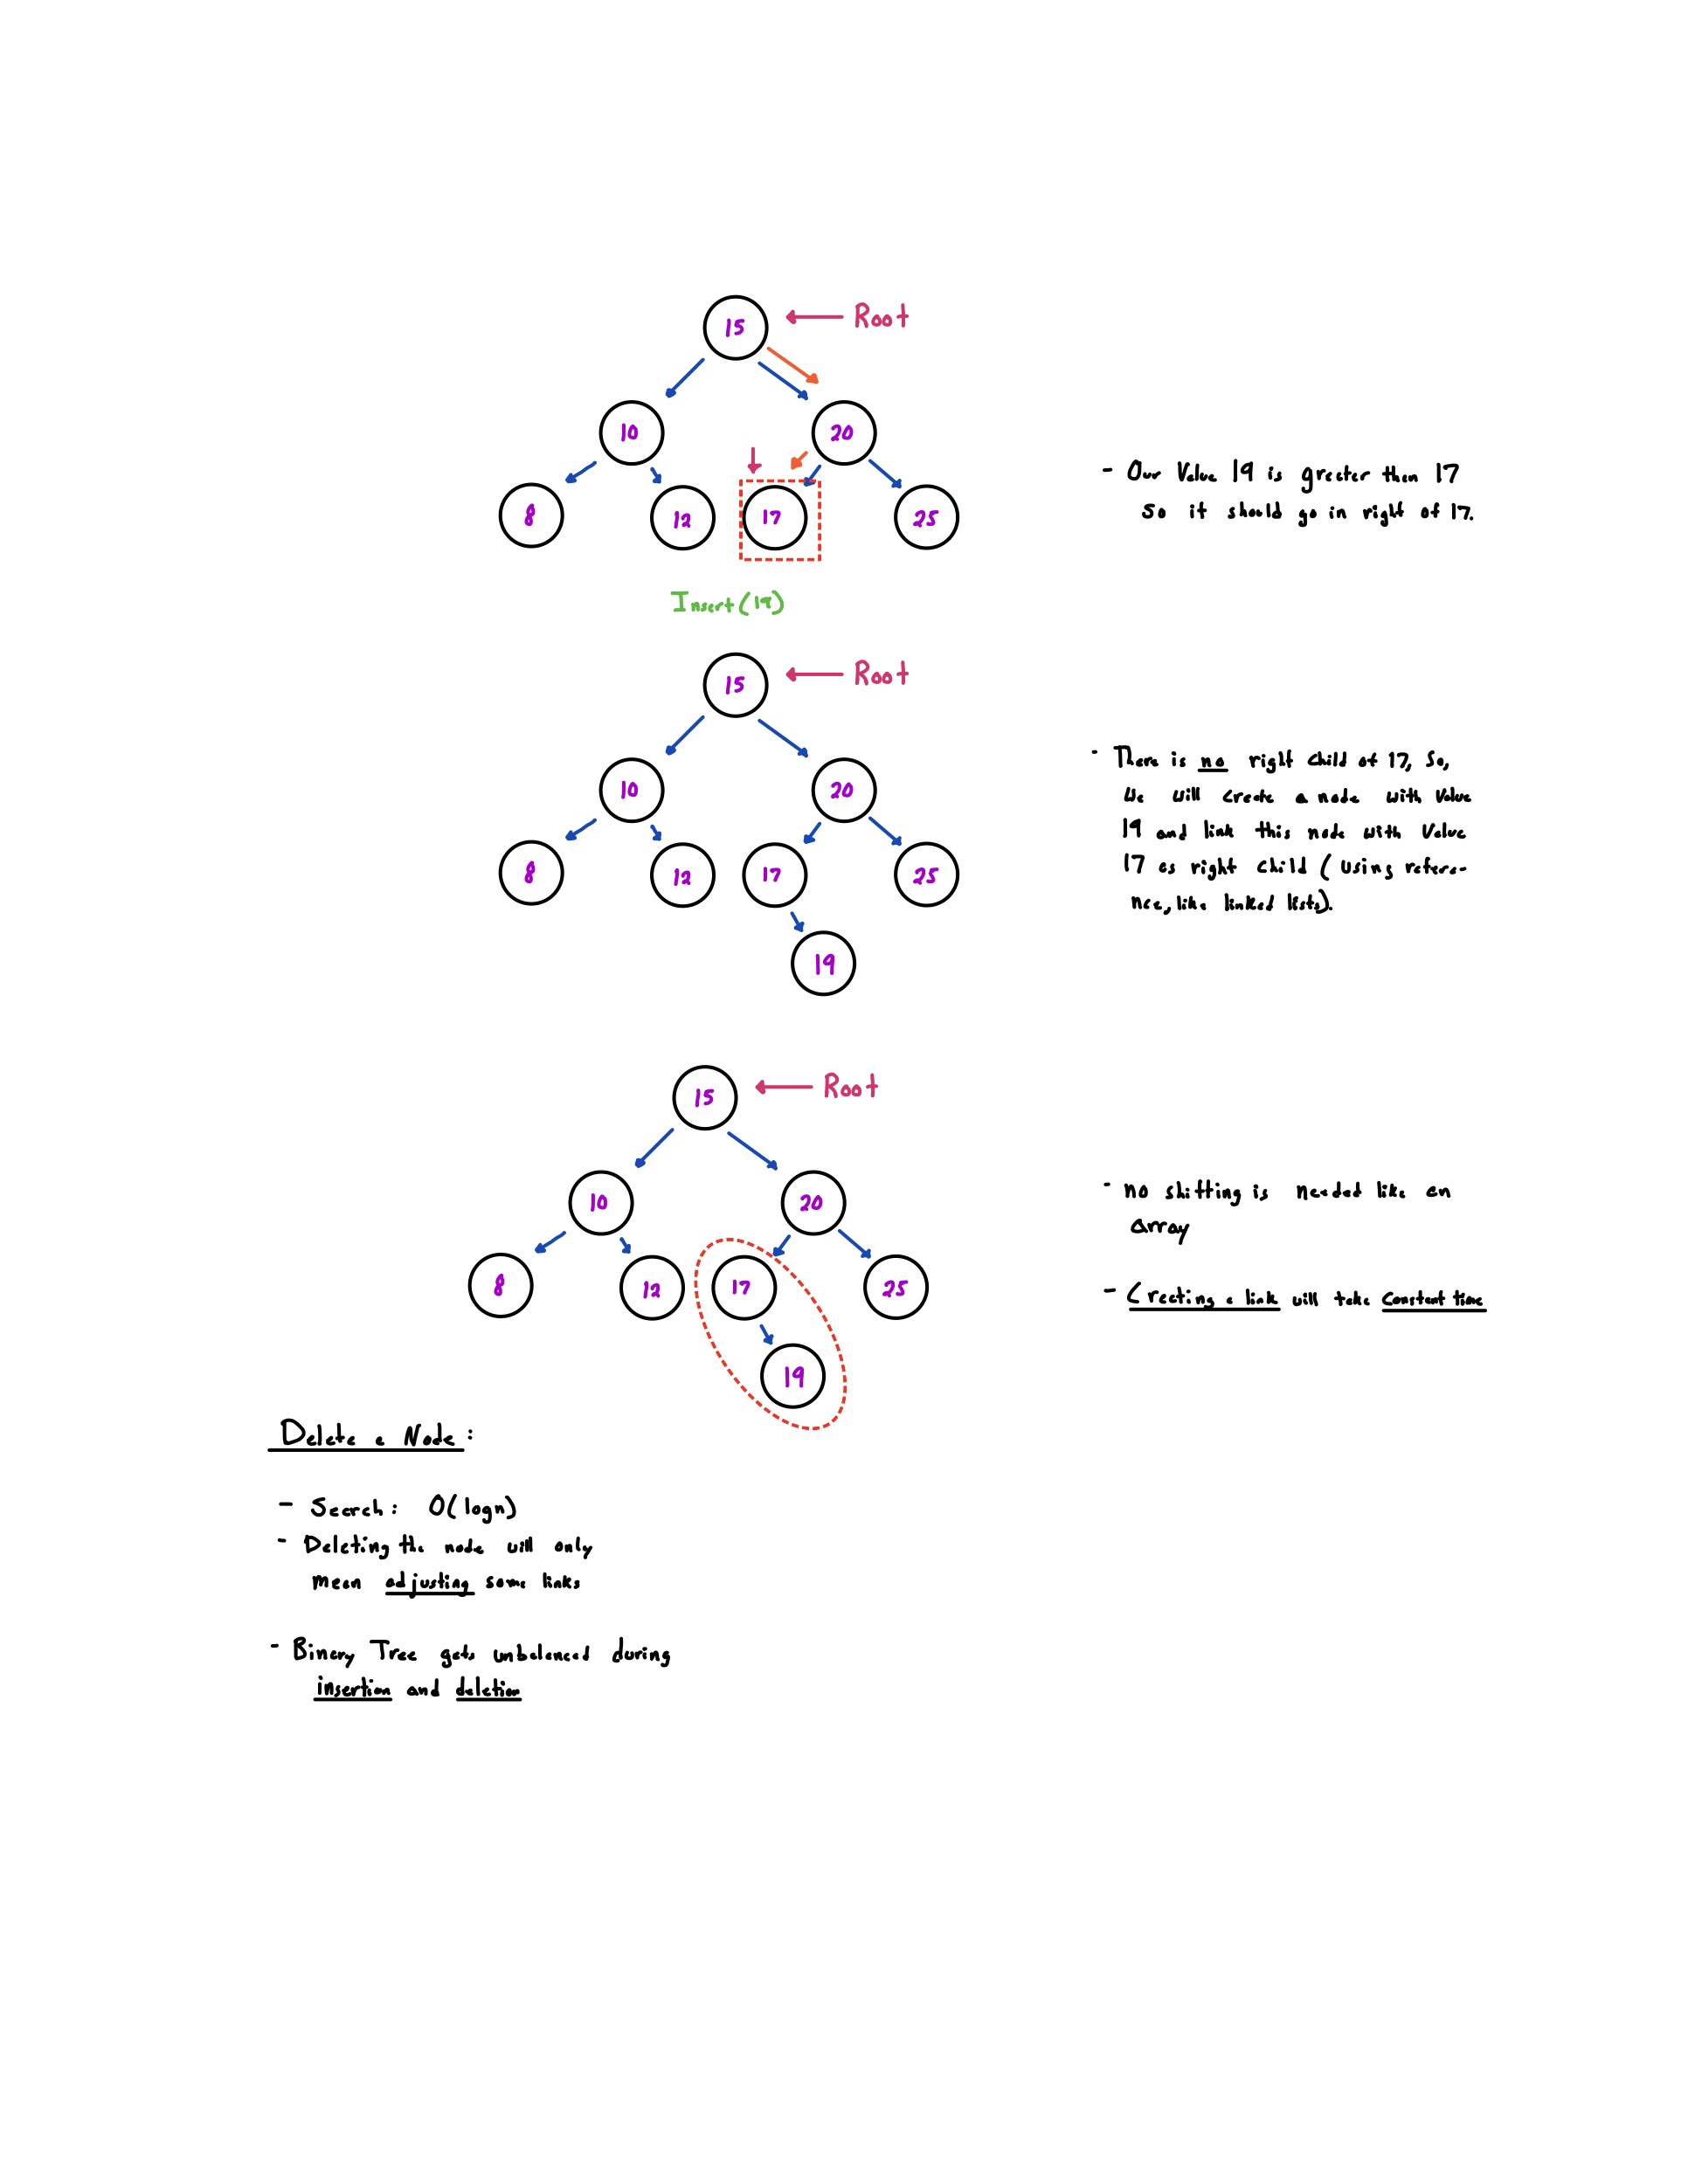 15 ← Root
10 20
8 12 17 25
- Our Value 19 is greater than 17
so it should go in right of 17.
Insert(19)
15 ← Root
10 20
8 12 17 25
19
- There is no right child of 17, So,
We will create a node with Value
19 and link this node with Value
17 as right child (using refere-
nce, like linked lists).
15 ← Root
10 20
8 12 17 25
19
- no shifting is needed like an
array
- Creating a link will take Constant time
Delete a Node:
- Search: O(logn)
- Deleting the node will only
mean adjusting some links
- Binary Tree gets unbalanced during
insertion and deletion